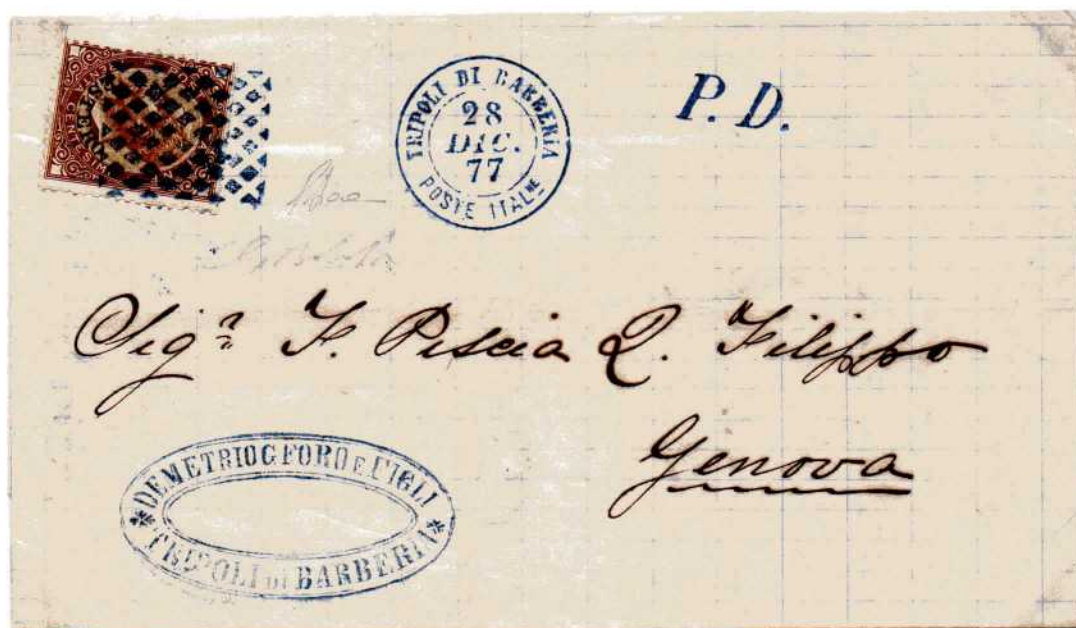 TRIPOLI DI BARBERIA
28
DIC.
77
POSTE ITALNE
P. D.
CENTESIMI
Sigr F. Piscia Q. Filippo
Genova
DEMETRIO G FORO E FIGLI
TRIPOLI DI BARBERIA